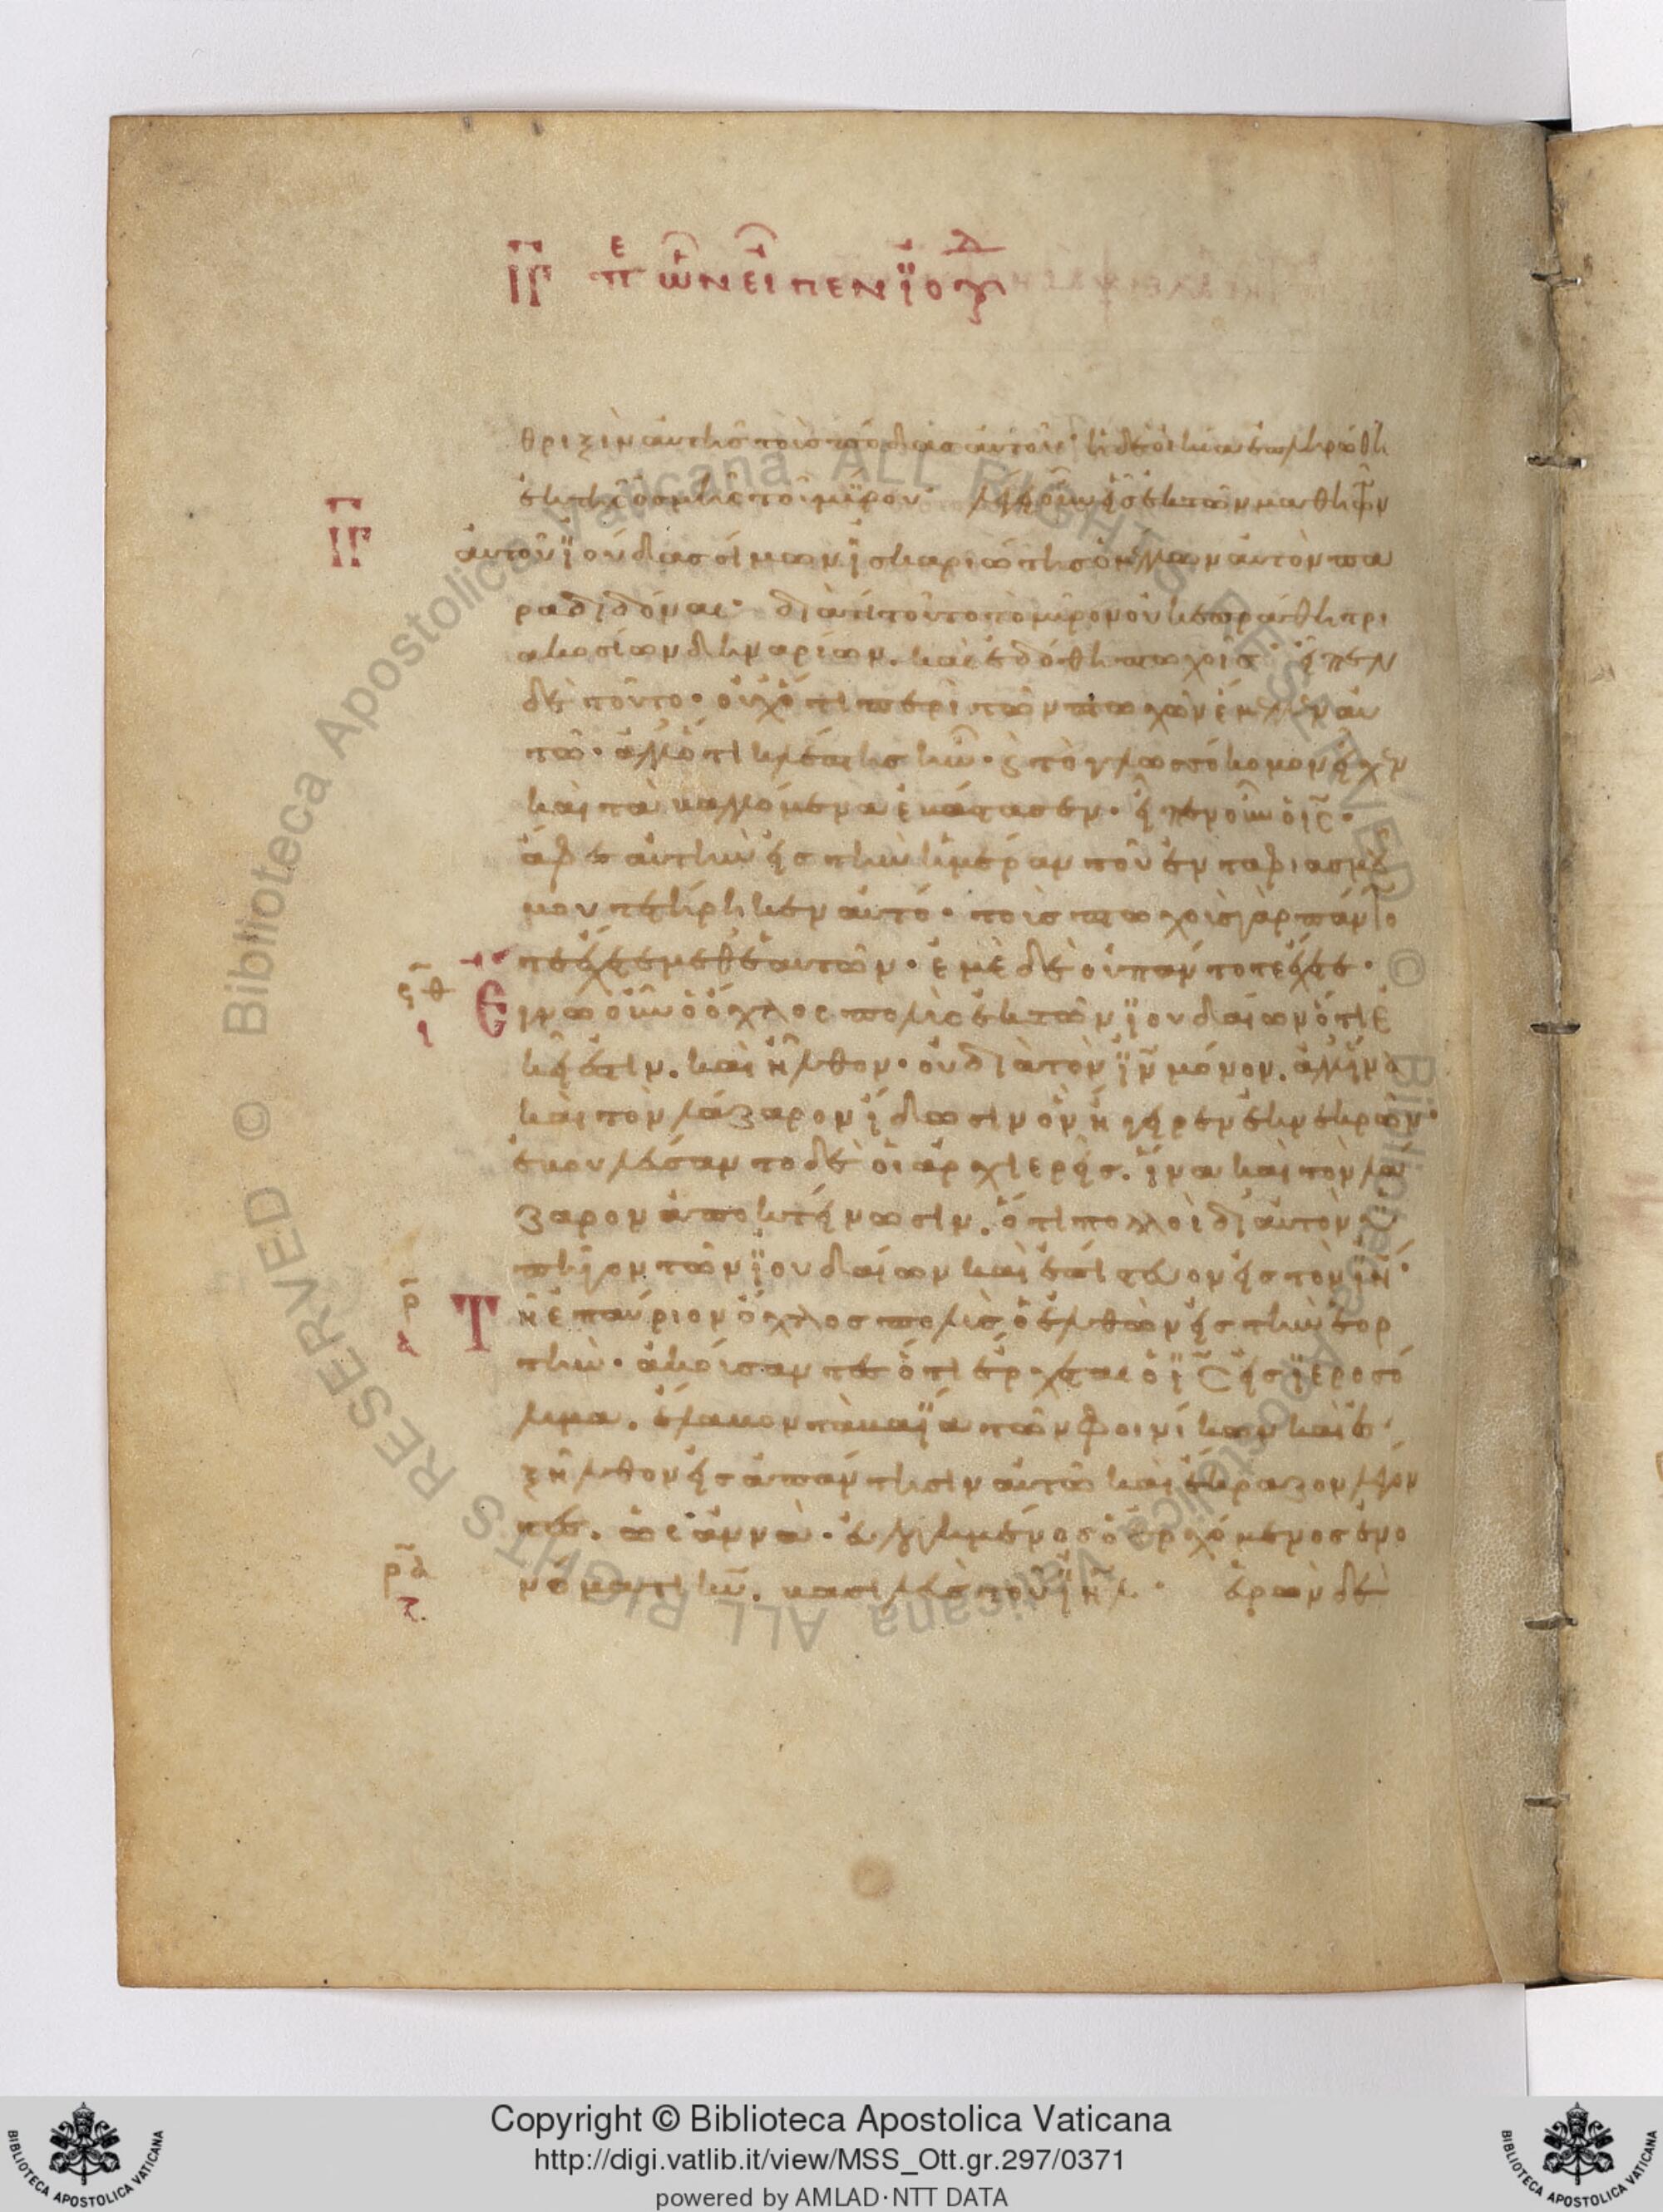 ΙΓ πε ὧν εἶπεν ἰούδ
θριξὶν αὐτῆς τοὺς πόδας αὐτοῦ· ἡ δὲ οἰκία ἐπληρώθη
ἐκ τῆς ὀσμῆς τοῦ μύρου· λέγει οὖν εἷς ἐκ τῶν μαθητῶν
ΙΓ
αὐτοῦ ἰούδας σίμων ἰσκαριώτης ὁ μέλλων αὐτὸν πα
ραδιδόναι· διατί τοῦτο τὸ μύρον οὐκ ἐπράθη τρι
ακοσίων δηναρίων. καὶ ἐδόθη πτωχοῖς· εἶπεν
δὲ τοῦτο· οὐχ ὅτι περὶ τῶν πτωχῶν ἔμελλεν αὐ
τῶ· ἀλλ' ὅτι κλέπτης ἦν· καὶ τὸ γλωσσόκομον εἶχεν
καὶ τὰ βαλλόμενα ἐβάσταζεν· εἶπεν οὖν ὁ ις·
ἄφες αὐτὴν εἰς τὴν ἡμέραν τοῦ ἐνταφιασμοῦ
μου τετήρηκεν αὐτό· τοὺς πτωχοὺς γὰρ πάντο
τε ἔχετε μεθ' ἑαυτῶν· ἐμὲ δὲ οὐ πάντοτε ἔχετε·
ϟθ
ι
Ἔγνω οὖν ὁ ὄχλος πολὺς ἐκ τῶν ἰουδαίων ὅτι ἐ
κεῖ ἐστιν. καὶ ἦλθον· οὐ διὰ τὸν ιν μόνον. ἀλλ' ἵνα
καὶ τὸν λάζαρον ἴδωσιν ὃν ἤγειρεν ἐκ νεκρῶν·
ἐβουλεύσαντο δὲ οἱ ἀρχιερεῖς. ἵνα καὶ τὸν λά
ζαρον ἀποκτείνωσιν. ὅτι πολλοὶ δι' αὐτὸν
ὑπῆγον τῶν ἰουδαίων καὶ ἐπίστευον εἰς τὸν ιν·
ρ
α
Τῆ ἐπαύριον ὄχλος πολὺς ὁ ἐλθὼν εἰς τὴν ἑορ
τὴν· ἀκούσαντες ὅτι ἔρχεται ὁ ις εἰς ἱεροσό
λυμα. ἔλαβον τὰ βαΐα τῶν φοινίκων καὶ ἐ
ξῆλθον εἰς ἀπάντησιν αὐτῶ καὶ ἔκραζον λέγον
τες. ὡσαννὰ· εὐλογημένος ὁ ἐρχόμενος ἐν ὀ
ρα
ζ
νόματι κυ. βασιλεὺς τοῦ ιηλ· εὑρὼν δὲ
Copyright © Biblioteca Apostolica Vaticana
http://digi.vatlib.it/view/MSS_Ott.gr.297/0371
powered by AMLAD·NTT DATA
BIBLIOTECA APOSTOLICA VATICANA
BIBLIOTECA APOSTOLICA VATICANA
© Biblioteca Apostolica Vaticana ALL RIGHTS RESERVED
© Biblioteca Apostolica Vaticana ALL RIGHTS RESERVED